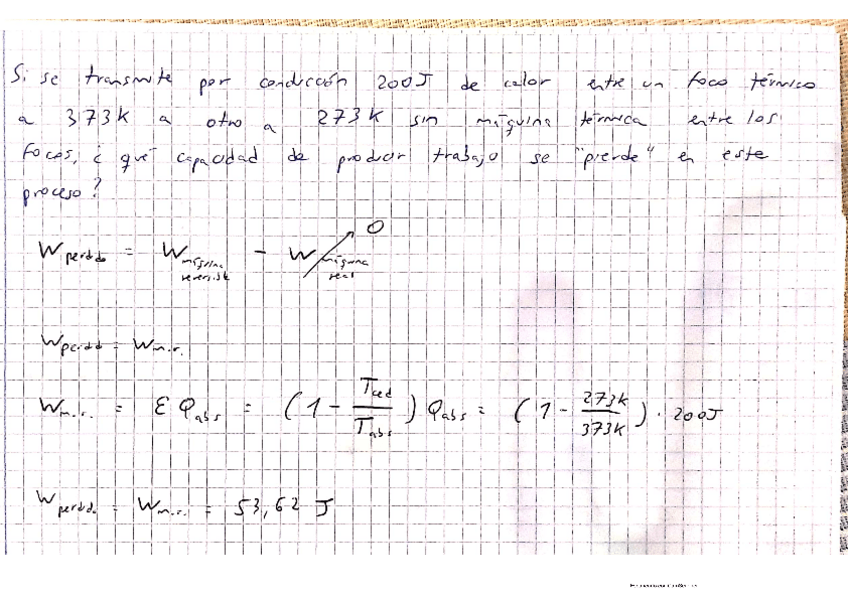 Si se transmite por conducción 200J de calor entre un foco térmico
a 373K a otro a 273K sin máquina térmica entre los
focos, ¿qué capacidad de producir trabajo se "pierde" en este
proceso?
W perdido = W máquina reversible - W máquina real 0
W perdido = W m.r.
W m.r. = ε Q abs = (1 - T ced / T abs) Q abs = (1 - 273K / 373K) · 200J
W perdido = W m.r. = 53,62 J